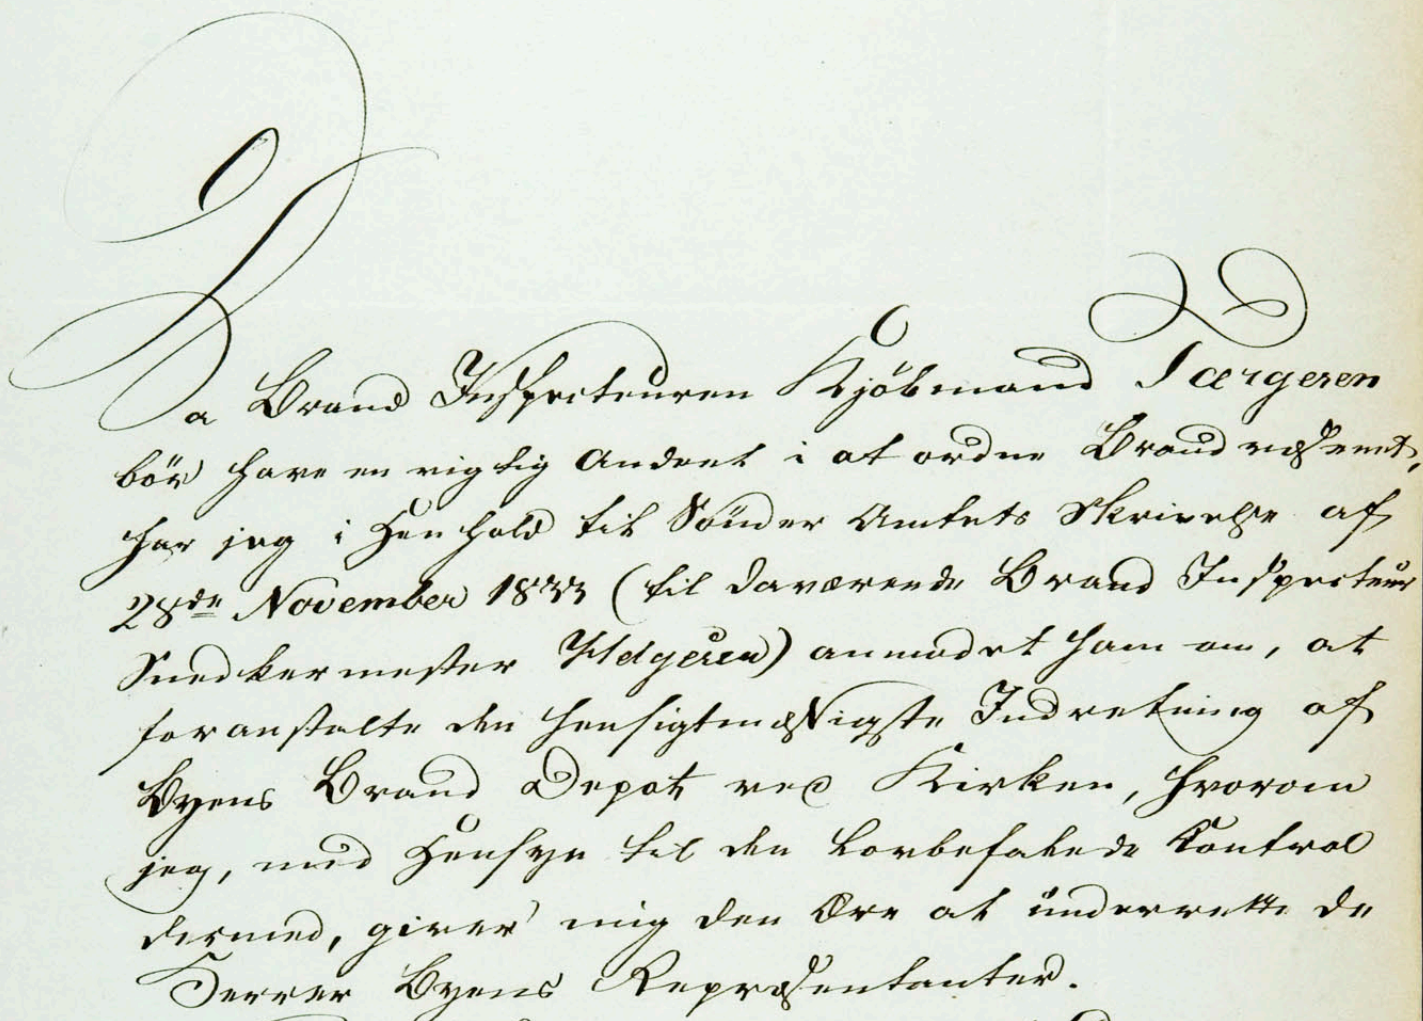 Da Brand Inspecteuren Kjöbmand Jærgesen
bör have en vigtig Andeel i at ordne Brandvæsenet,
har jeg i Henhold til Sönder Amtets Skrivelse af
28de November 1833 (til daværende Brand Inspecteur
Snedkermester) anmodet ham om, at
foranstalte den hensigtmæssigste Indretning af
Byens Brand Depot ved Kirken, hvorom
jeg, med Hensyn til den lovbefalede Control
dermed, giver mig den Ære at underrette de
Herrer Byens Repræsentanter.